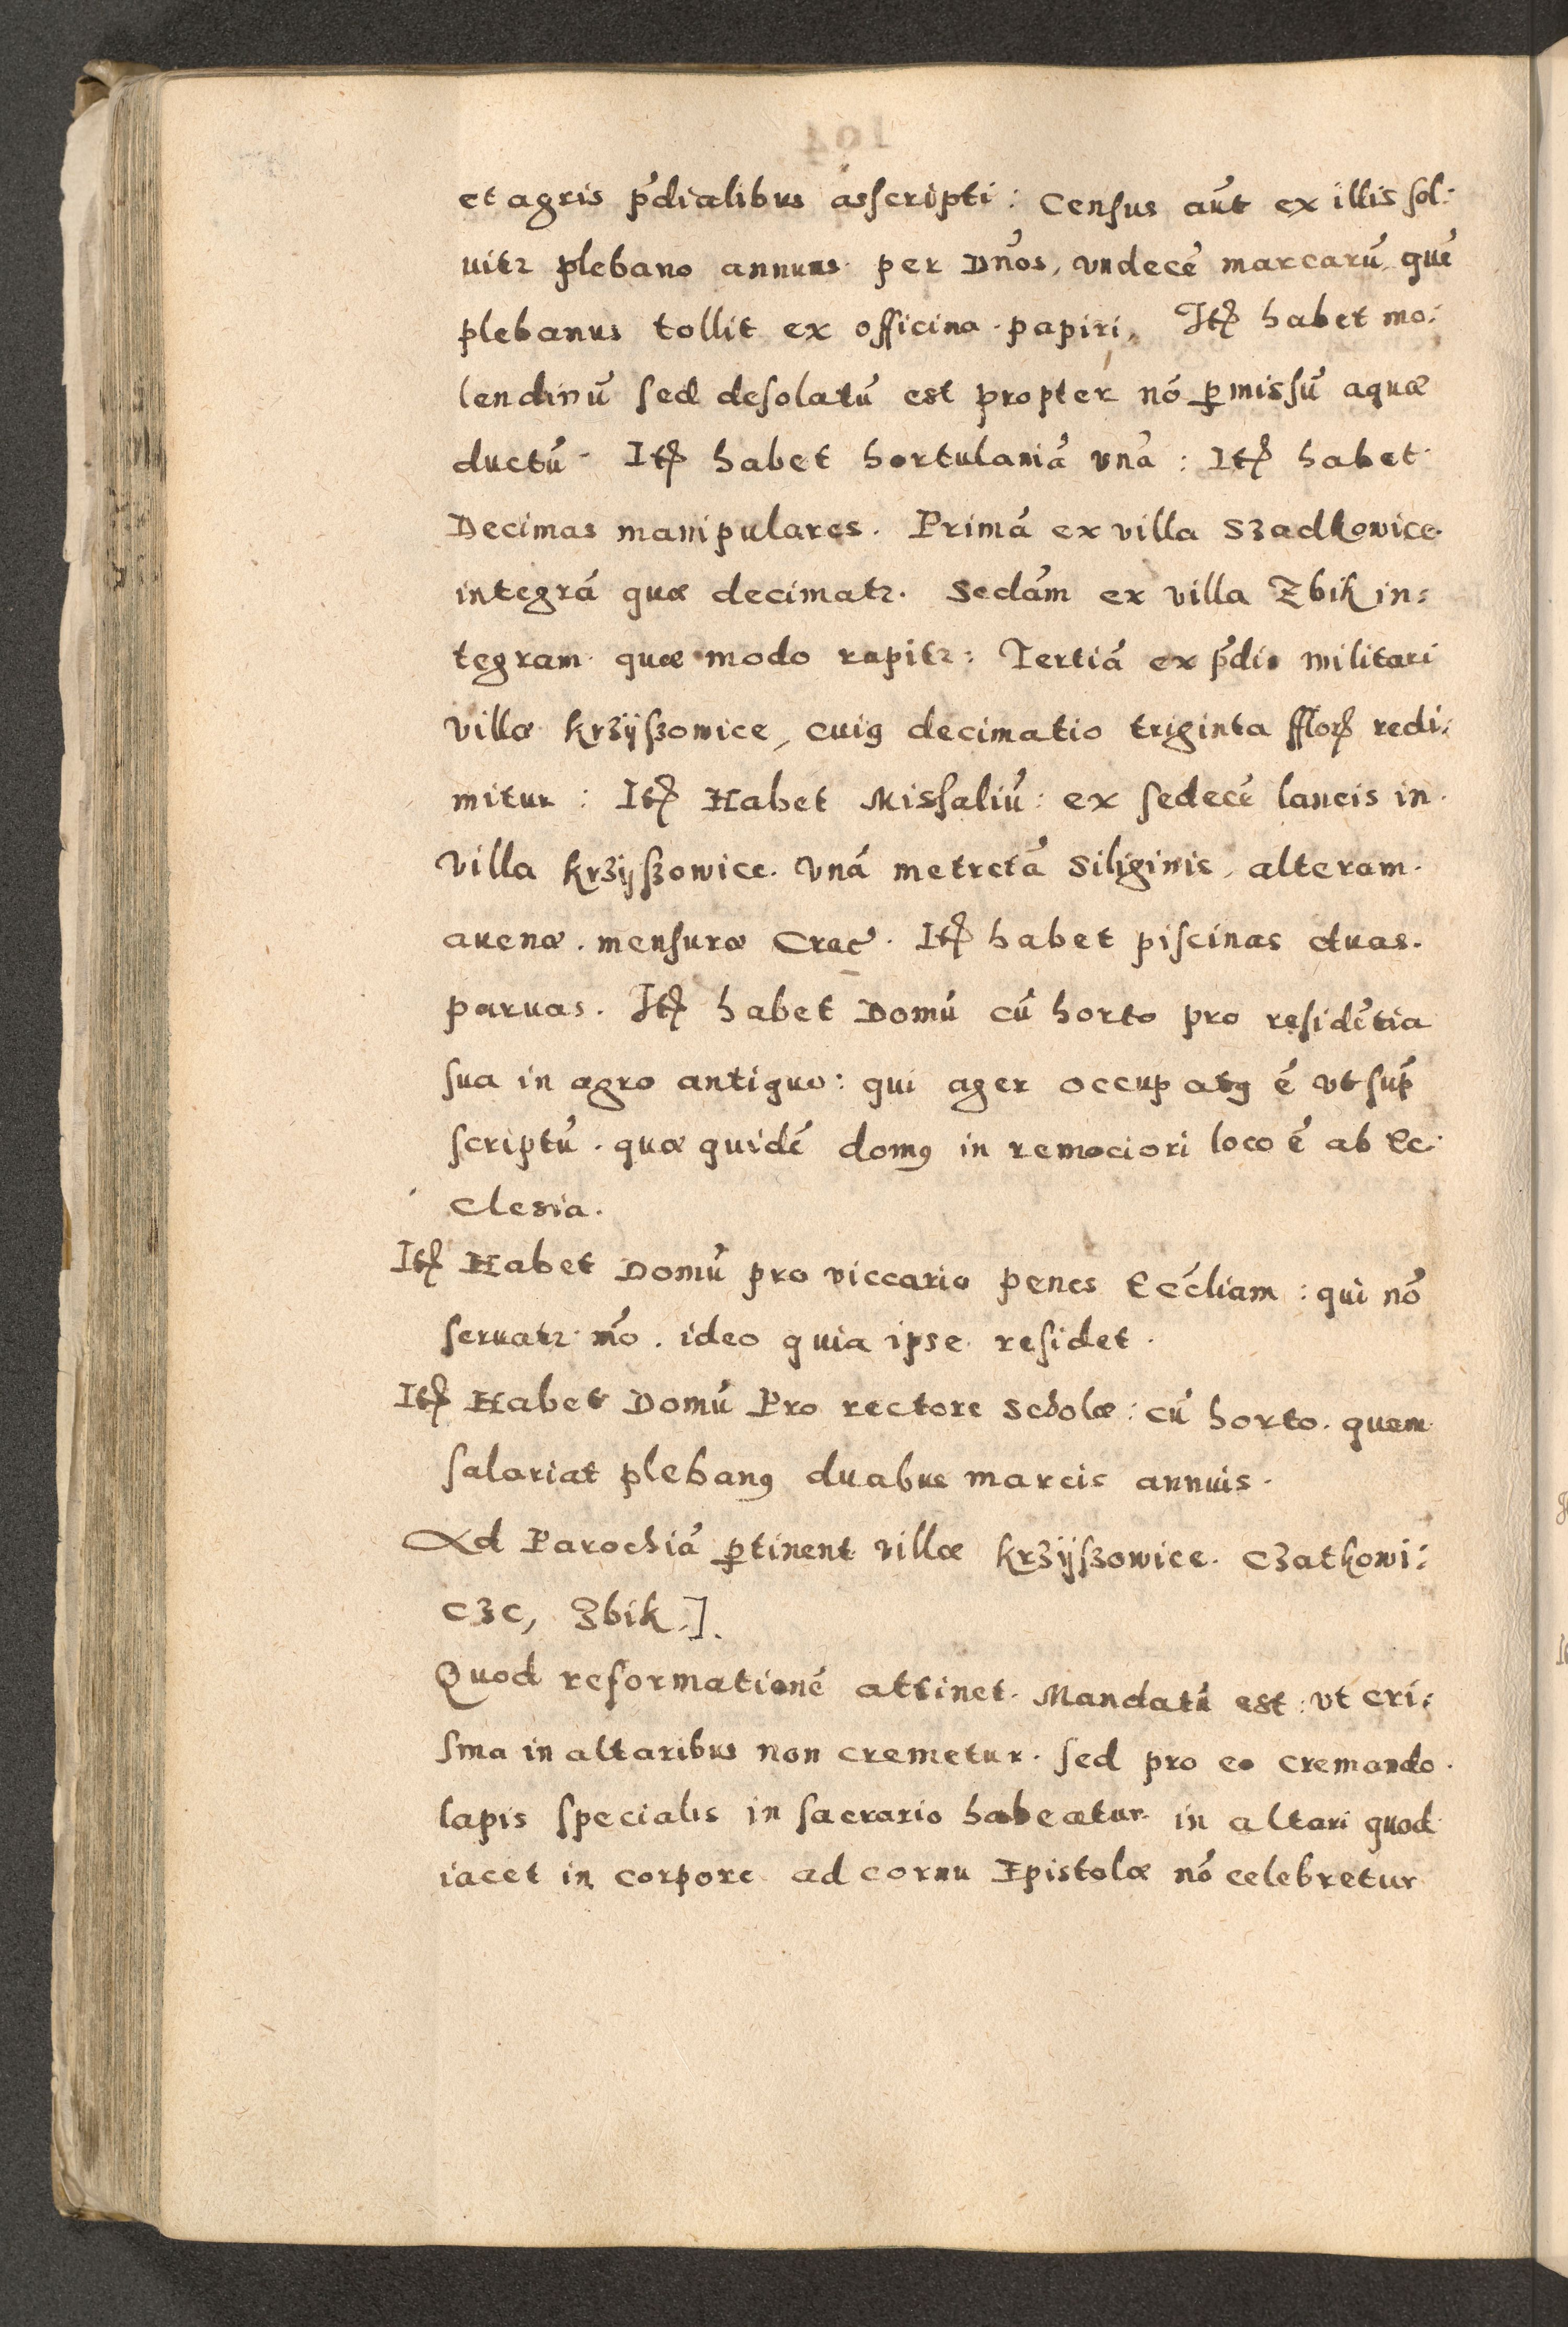 et agris p̃dialibus asscripti : Census aũt ex illis sol:
uitꝛ plebano annuus per Dños, vndecẽ marcarũ quẽ
plebanus tollit ex officina papiri, Itꝭ habet mo:
lendinũ sed desolatũ est propter nõ ꝑmissũ aquæ
ductũ. Itꝭ habet hortulaniã vnã : Itꝭ habet
Decimas manipulares. Primã ex villa Szadkowice
integrã quæ decimatꝛ. Secdãm ex villa Zbik in:
tegram quæ modo rapitꝛ : Tertiã ex p̃dio militari
villæ krzÿszowice, cuiꝰ decimatio triginta fflorꝭ redi:
mitur : Itꝭ Habet Missaliũ : ex sedecẽ laneis in
villa krzÿszowice. vnã metretã Siliginis, alteram
auenæ. mensuræ Crac̃. Itꝭ habet piscinas duas.
paruas. Itꝭ habet Domũ cũ horto pro residẽtia
sua in agro antiquo : qui ager occupatꝰ ẽ vt sup̃
scriptũ. quæ quidẽ domꝰ in remociori loco ẽ ab Ec:
clesia.
Itꝭ Habet Domũ pro viccario penes Ecc̃liam : qui nõ
seruatꝛ mõ. ideo quia ipse residet.
Itꝭ Habet Domũ Pro rectore Scholæ : cũ horto. quem
salariat plebanꝰ duabus marcis annuis.
Ad Parochiã ꝑtinent villæ krzÿszowice. Czatkowi:
cze, Zbik.].
Quod reformationẽ attinet. Mandatũ est : vt cri:
sma in altaribus non cremetur. sed pro eo cremando.
lapis specialis in sacrario habeatur in altari quod
iacet in corpore ad cornu Epistolæ nõ celebretur